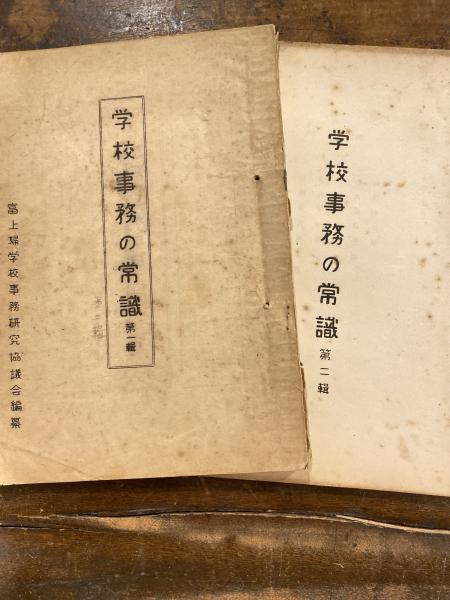 学校事務の常識 第二輯
学校事務の常識 第一輯
富上婦学校事務研究協議会編纂